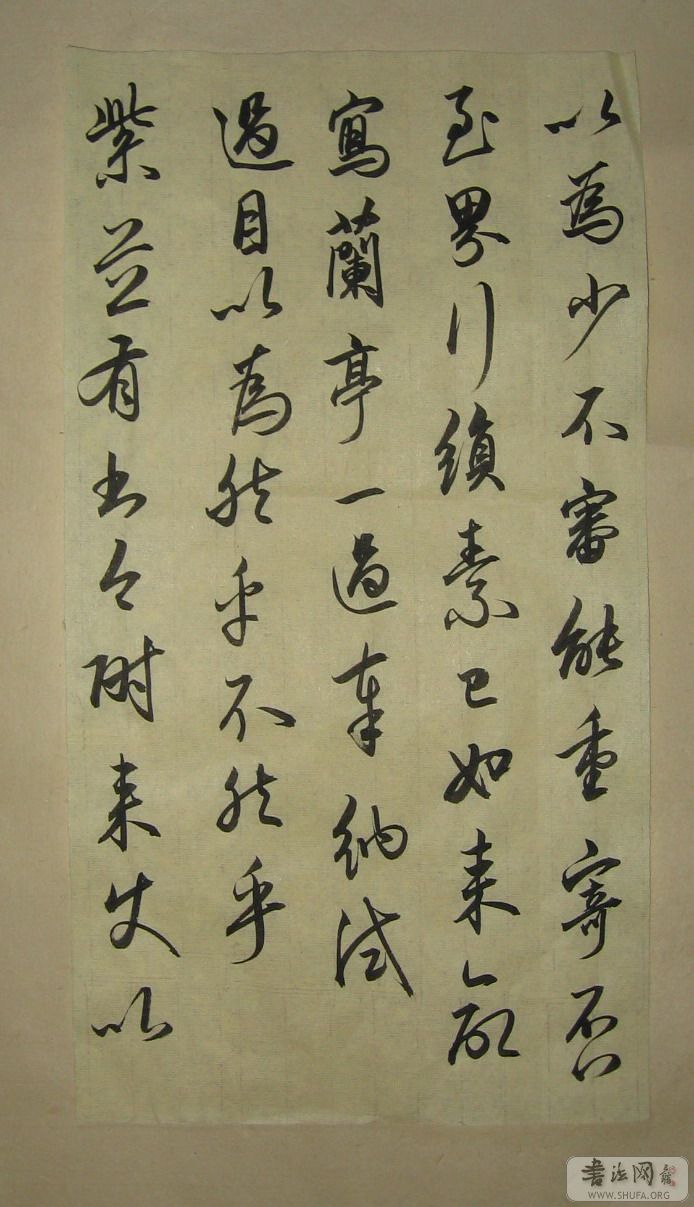 以為少不審能重寄否
至界行絹素已如来命
寫蘭亭一過奉納試
過目以為然乎不然乎
紫芝有書今附来使以
書法网
WWW.SHUFA.ORG